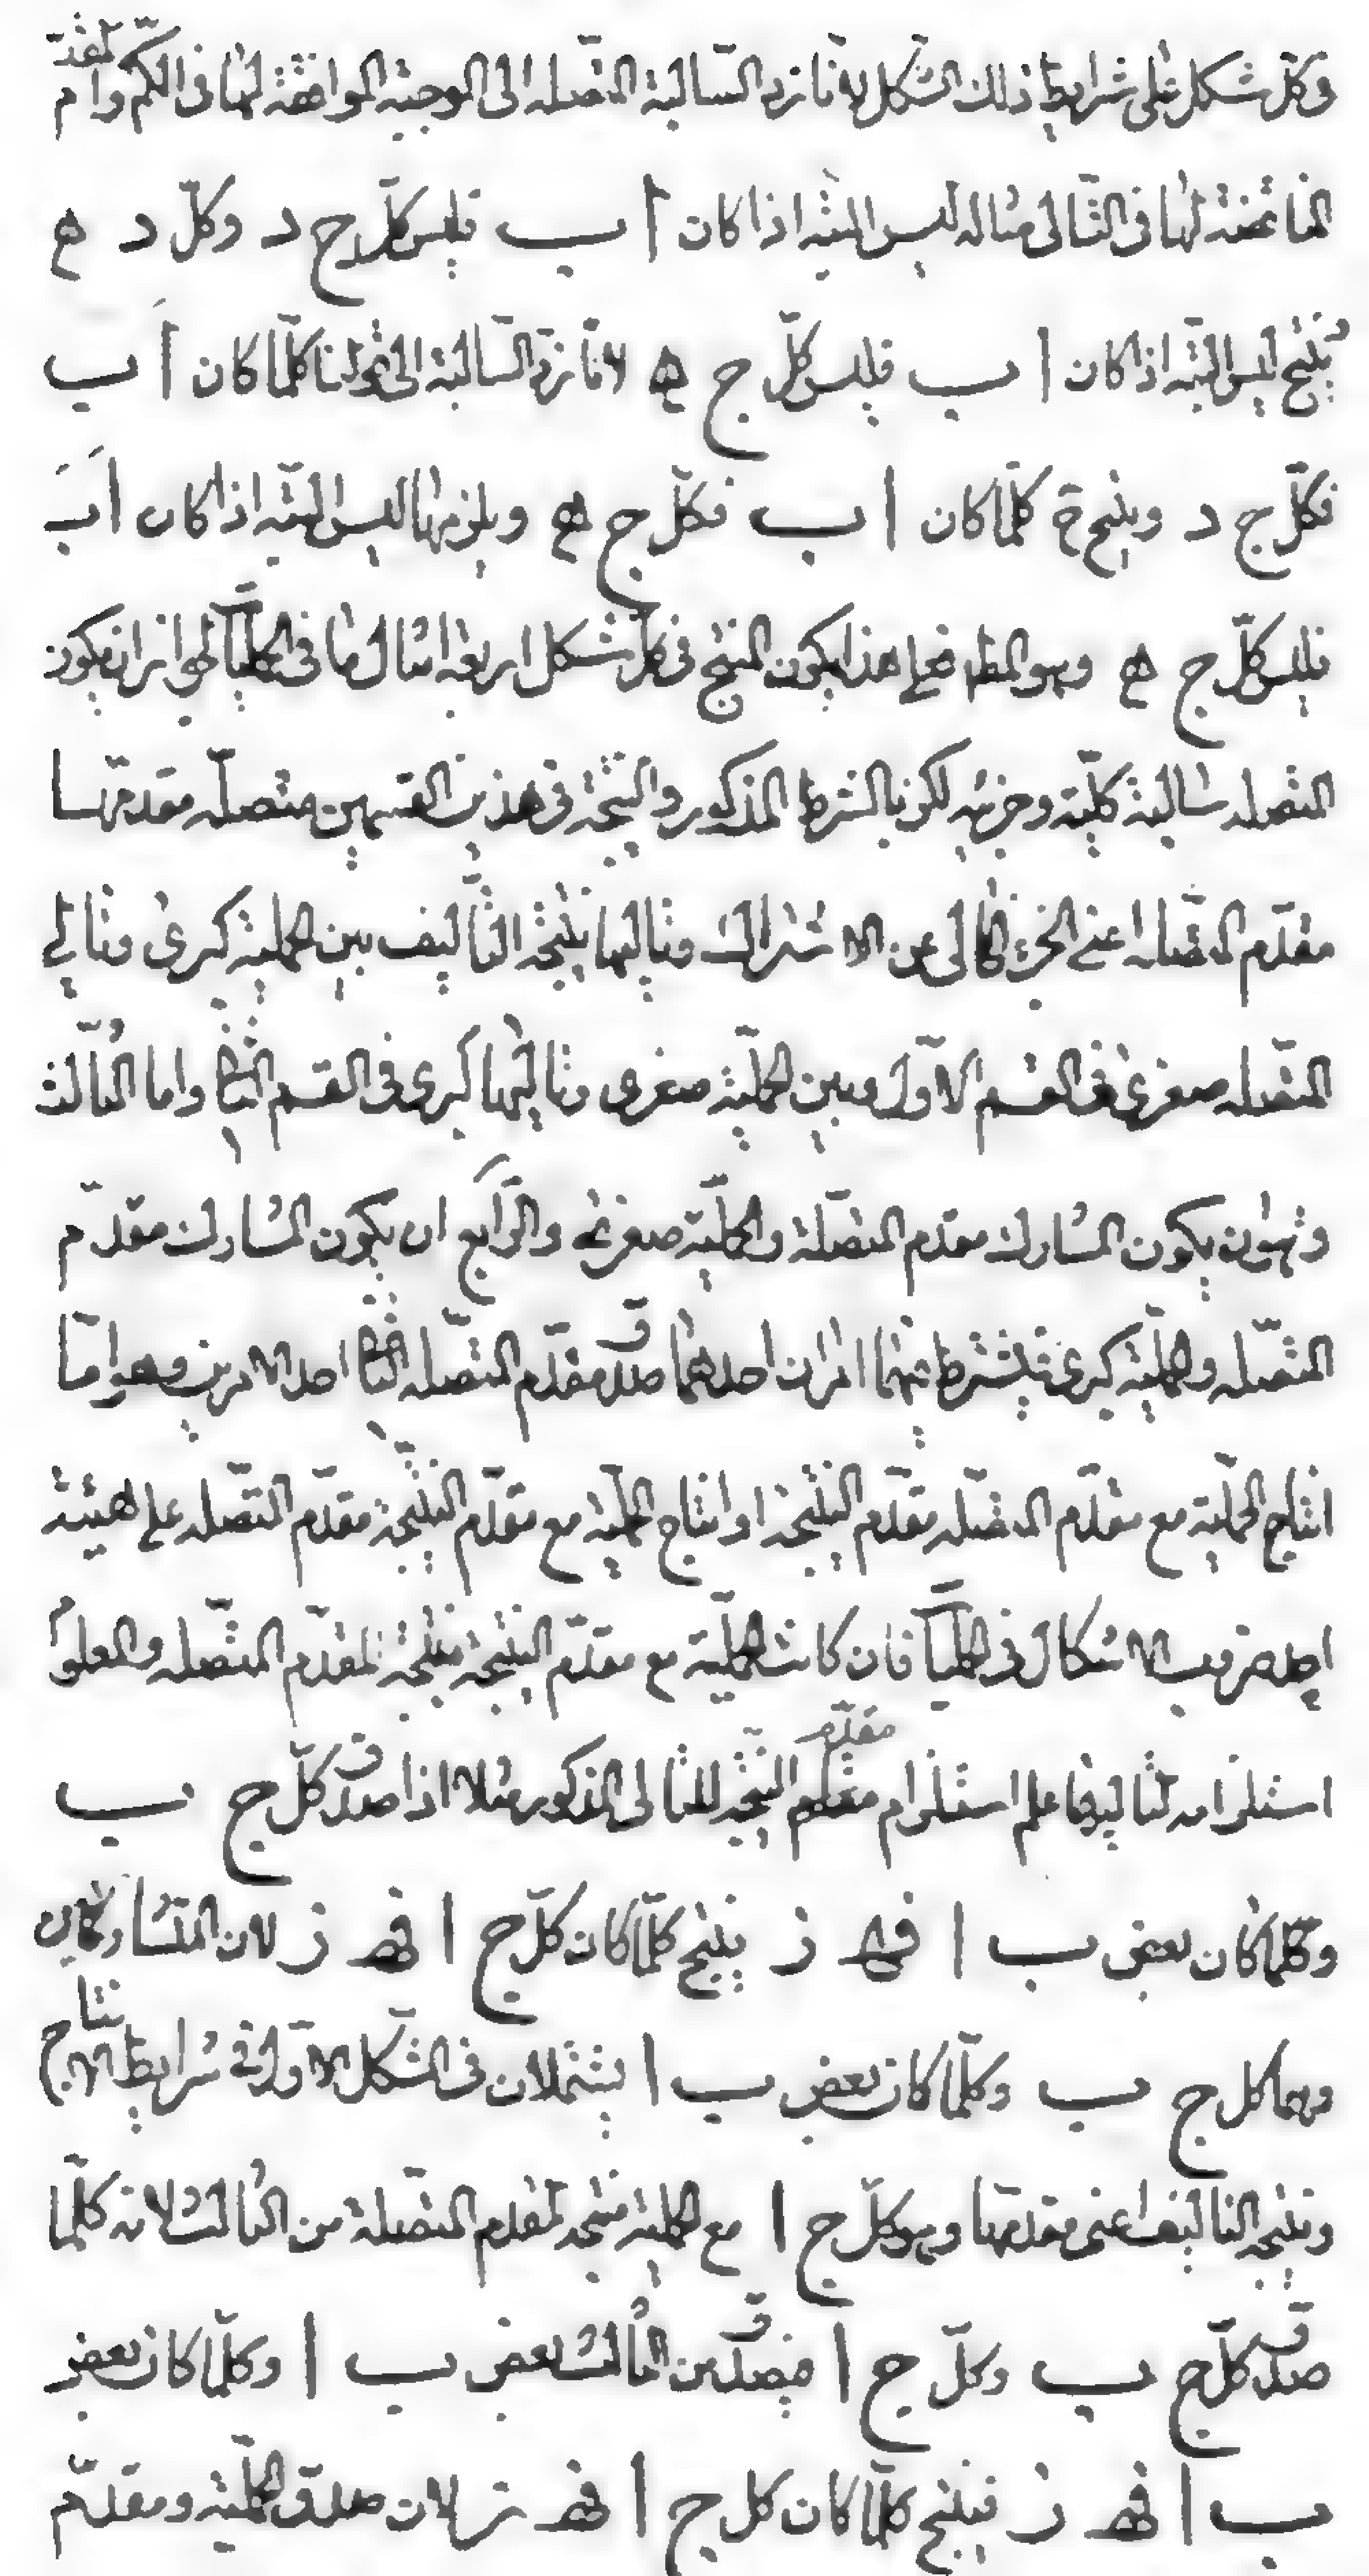 وكل شكل على شرايط ذلك الشكل لانا نرد السالبة المتصله الى الموجبه الموافقة لها فى الكم والمقدم
المناقضة لها فى التالى مثاله ليس البته اذا كان ا ب فليس كل ج د وكل د ه
ينتج ليس البته اذا كان ا ب فليس كل ج ه لانا نرد السالبة الى قولنا كلما كان ا ب
فكل ج د وينتج ح كلما كان ا ب فكل ج ه ويلزمها ليس البته اذا كان ا ب
فليس كل ج ه وهو المط فعلى هذا يكون المنتج فى كل شكل اربعة امثال ما فى الحمليات لجواز ان يكون
المتصله سالبة كلية وجزئيه لكونا بالشرط المذكور والنتيجة فى هذين القسمين متصله مقدمها
مقدم المتصله اعنى الجزء الخالى عن الاشتراك وتاليها نتيجة التأليف بين الحملية كبرى وتالى
المتصله صغرى فى القسم الاول وبين الحملية صغرى وتاليها كبرى فى القسم الثانى واما الثالث
وهو ان يكون المشارك مقدم المتصلة والحملية صغرى والرابع ان يكون المشارك مقدم
المتصله والحملية كبرى فيشترط فيهما امران احدهما صدق مقدم المتصله الثانى احد الامرين وهو اما
انتاج الحملية مع مقدم المتصله مقدم النتيجة او انتاج الحملية مع مقدم النتيجة مقدم المتصله على هيئة
احد ضروب الاشكال فى الحمليات فان كانت الحملية مع مقدم النتيجة منتجة لمقدم المتصله والمعلوم
استلزامه لتاليها علم استلزام مقدم النتيجة للتالى المذكور مثلا اذا صدق كل ج ب
وكلما كان بعض ب ا فه ز ينتج كلما كان كل ج ا فه ز لان المتشاركين
وهما كل ج ب وكلما كان بعض ب ا يشتملان فى الشكل الاول فى شرايط الانتاج
ونتيجة التأليف اعنى مقدمها وهو كل ج ا مع الحملية منتجة لمقدم المتصلة من الثالث لانه كلما
صدق كل ج ب وكل ج ا فيصدق من الثالث بعض ب ا وكلما كان بعض
ب ا فه ز فينتج كلما كان كل ج ا فه ز لان صدق الحملية ومقدم